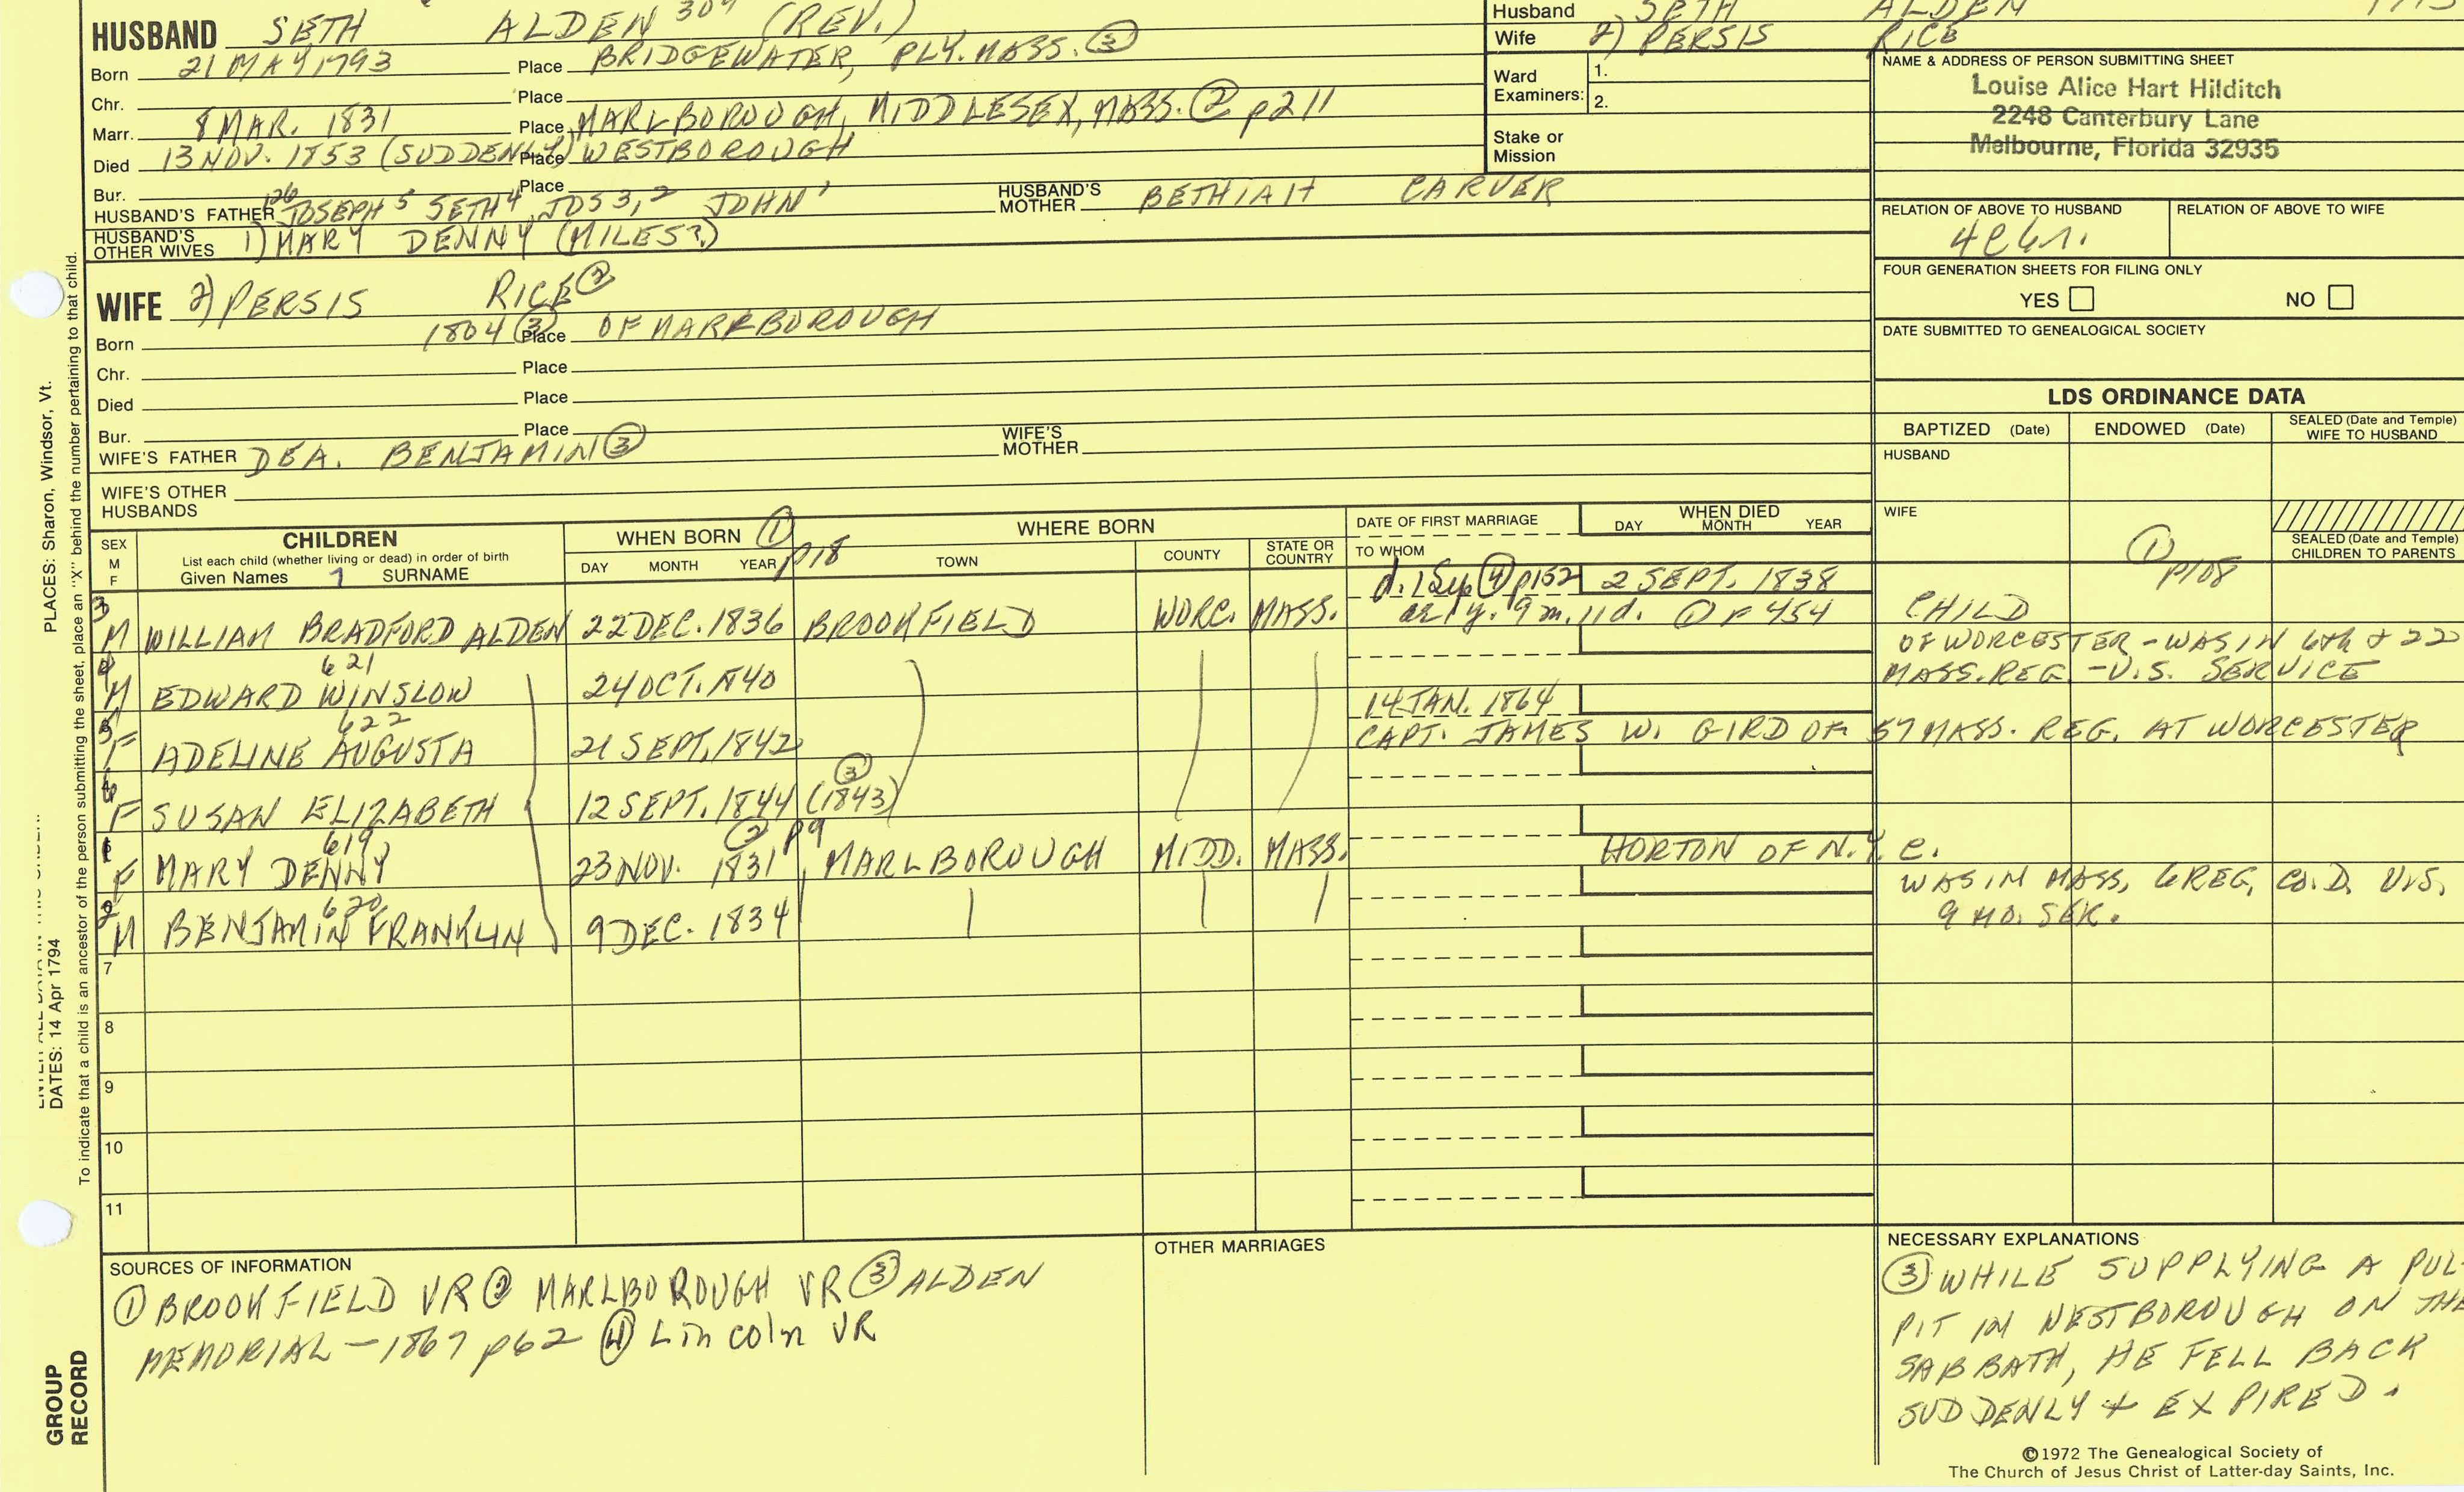 HUSBAND SETH ALDEN (REV.)
Born 21 MAY 1793 Place BRIDGEWATER, PLY. MASS. ③
Chr. Place
Marr. 8 MAR. 1831 Place MARLBOROUGH, MIDDLESEX, MASS. ② p211
Died 13 NOV. 1853 (SUDDENLY) Place WESTBOROUGH
Bur. Place
HUSBAND'S FATHER 126 JOSEPH 5 SETH 4 JOS 3, 2 JOHN 1 HUSBAND'S MOTHER BETHIAH CARVER
HUSBAND'S OTHER WIVES 1) MARY DENNY (MILES?)
Husband SETH ALDEN
Wife 2) PERSIS RICE
Ward Examiners: 1.
2.
Stake or Mission
NAME & ADDRESS OF PERSON SUBMITTING SHEET
Louise Alice Hart Hilditch
2248 Canterbury Lane
Melbourne, Florida 32935
RELATION OF ABOVE TO HUSBAND RELATION OF ABOVE TO WIFE
FOUR GENERATION SHEETS FOR FILING ONLY
YES NO
DATE SUBMITTED TO GENEALOGICAL SOCIETY
WIFE 2) PERSIS RICE ②
Born 1804 ③ Place OF MARLBOROUGH
Chr. Place
Died Place
Bur. Place
WIFE'S FATHER DEA. BENJAMIN ③ WIFE'S MOTHER
WIFE'S OTHER HUSBANDS
LDS ORDINANCE DATA
BAPTIZED (Date) ENDOWED (Date) SEALED (Date and Temple) WIFE TO HUSBAND
HUSBAND
WIFE
SEALED (Date and Temple) CHILDREN TO PARENTS
① p108
SEX M F
CHILDREN
List each child (whether living or dead) in order of birth
Given Names SURNAME
WHEN BORN ① p18
DAY MONTH YEAR
WHERE BORN
TOWN COUNTY STATE OR COUNTRY
DATE OF FIRST MARRIAGE
TO WHOM
WHEN DIED
DAY MONTH YEAR
d. 1 Sep ④ p152 2 SEPT. 1838
3 M WILLIAM BRADFORD ALDEN 22 DEC. 1836 BROOKFIELD WORC. MASS. ae 1 y. 9 m. 11 d. ① P 454 CHILD
621
4 M EDWARD WINSLOW 24 OCT. 1840 OF WORCESTER - WAS IN 6th & 22 MASS. REG. - U.S. SERVICE
622
5 F ADELINE AUGUSTA 21 SEPT. 1842 14 JAN. 1864
CAPT. JAMES W. GIRD OF 57 MASS. REG. AT WORCESTER
6 F SUSAN ELIZABETH 12 SEPT. 1844 (1843) ③
619 ② p9
1 F MARY DENNY 23 NOV. 1831 MARLBOROUGH MIDD. MASS. HORTON OF N.Y.C.
620
2 M BENJAMIN FRANKLIN 9 DEC. 1834 WAS IN MASS. 6 REG. CO. D. U.S.
9 MO. SER.
7
8
9
10
11
SOURCES OF INFORMATION
① BROOKFIELD VR ② MARLBOROUGH VR ③ ALDEN
MEMORIAL - 1867 p62 ④ Lincoln VR
OTHER MARRIAGES
NECESSARY EXPLANATIONS
③ WHILE SUPPLYING A PUL-
PIT IN WESTBOROUGH ON THE
SABBATH, HE FELL BACK
SUDDENLY + EXPIRED.
©1972 The Genealogical Society of
The Church of Jesus Christ of Latter-day Saints, Inc.
PLACES: Sharon, Windsor, Vt.
DATES: 14 Apr 1794
To indicate that a child is an ancestor of the person submitting the sheet, place an "X" behind the number pertaining to that child.
GROUP RECORD